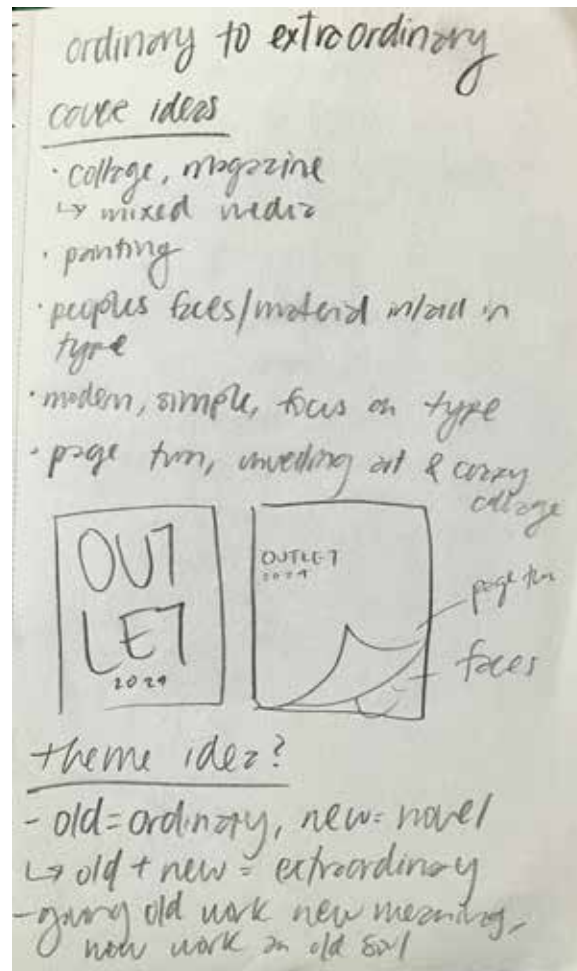 ordinary to extraordinary
cover ideas
· collage, magazine
↳ mixed media
· panting
· peoples faces/material in/and in
type
· modern, simple, focus on type
· page turn, unveiling art & crazy
collage
OUT
LET
2024
OUTLET
2024
page turn
faces
theme idea?
- old = ordinary, new = novel
↳ old + new = extraordinary
- giving old work new meaning,
new work an old soul